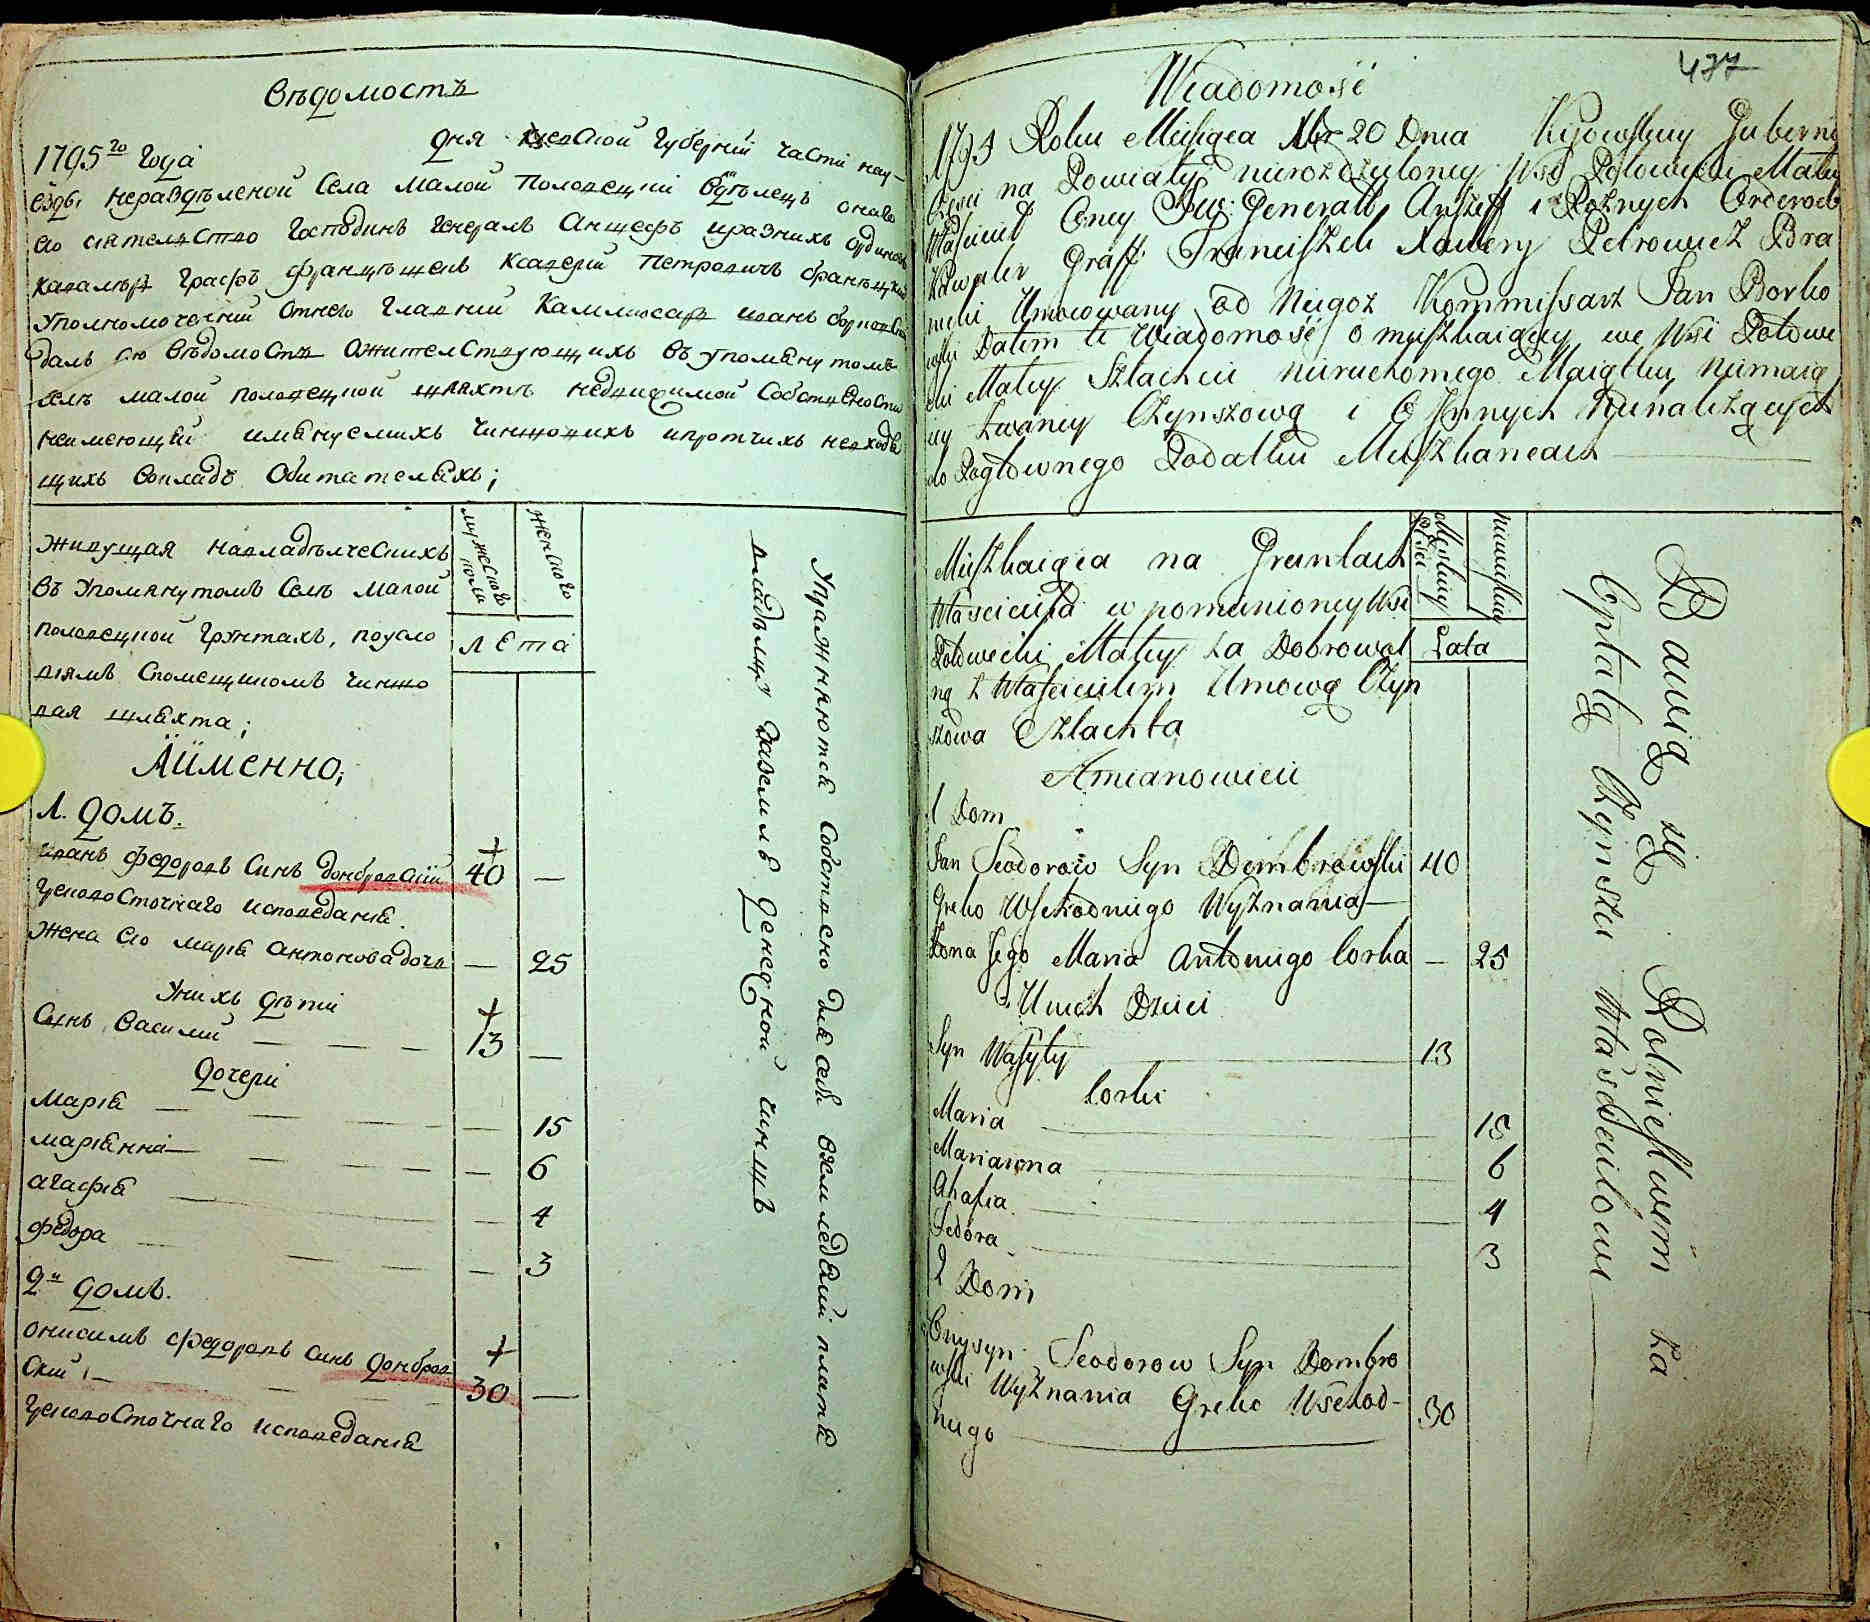 Вѣдомостъ
1795го года дня Кіевской губерніи части на у-
ѣзды неразделеной села малой половецкій владѣлецъ онаго
его сіятелство господинъ генералъ аншефъ и разнихъ ординовъ
кавалѣръ графъ францѣшекъ Ксаверій Петровичъ браницкій
уполномоченій отнего главній каммисаръ иванъ борковскій
далъ сю вѣдомость ожителствующихъ въ упомянутомъ
селѣ малой половецкой шляхтѣ недвижимой собствености
неимеющей имянуемихъ чиншовихъ и протчихъ невходя
щихъ вокладъ обитателяхъ;
живущая навладѣлческихъ
въ упомянутомъ селѣ малой
половецкой грунтахъ, поусло
віямъ спомещикомъ чиншо
вая шляхта;
Аименно;
мужеского пола
женского
лета
1. домъ.
иванъ федоровъ синъ домбровскій 40 —
грековосточнаго исповеданія.
жена его марія антонова дочь — 25
Унихъ дѣти
синъ василий 13 —
дочери
марія — 15
маріянна — 6
агафія — 4
федора — 3
2й домъ.
онисимъ федоровъ синъ домбров
скій 30 —
грековосточнаго исповеданія
Упражняются собствено для себя вземледѣлій платя
владѣлцу заземлѣ денежной чиншъ
477
Wiadomość
1795 Roku Miesiąca Xbr 20 Dnia Kijowskiey Gubernij
Częsci na Powiaty nierozdzyloney Wsi Połowecki Małey
Właściciel Oney Jw: Generall Anszeff i Rożnych Orderow
Kawaler Graff Franciszek Xawery Petrowicz Bra
nicki Umocowany od Niegoż Kommissarz Jan Borko
wski Dałem te Wiadomość o mieszkaiącey we Wsi Połowe
cki Małey Szlachcie nieruchomego Maiątku niemaią
cey zwaney Czynszową i o Innych Nienależących
do Pogłownego Podatku Mieszkancach
Mieszkaiąca na Gruntach
Właściciela w pomienioney Wsi
Połowecki Małey za Dobrowol
ną z Właścicielem Umową Czyn
szowa Szlachta
Amianowicie
Męskiey Płci
niewieskiey
Lata
1 Dom
Jan Feodorow Syn Dombrowski 40
Greko Wschodniego Wyznania
Żona Jego Maria Antoniego Corka — 25
U nich Dzieci
Syn Wasyly 13
Corki
Maria 15
Marianna 6
Ahafia 4
Fedora 3
2 Dom
Onysym Feodorow Syn Dombro
wski Wyznania Greko Wschod-
niego 30
Bawią się Rolnictwem za
Opłatą Czynszu Właścicielowi